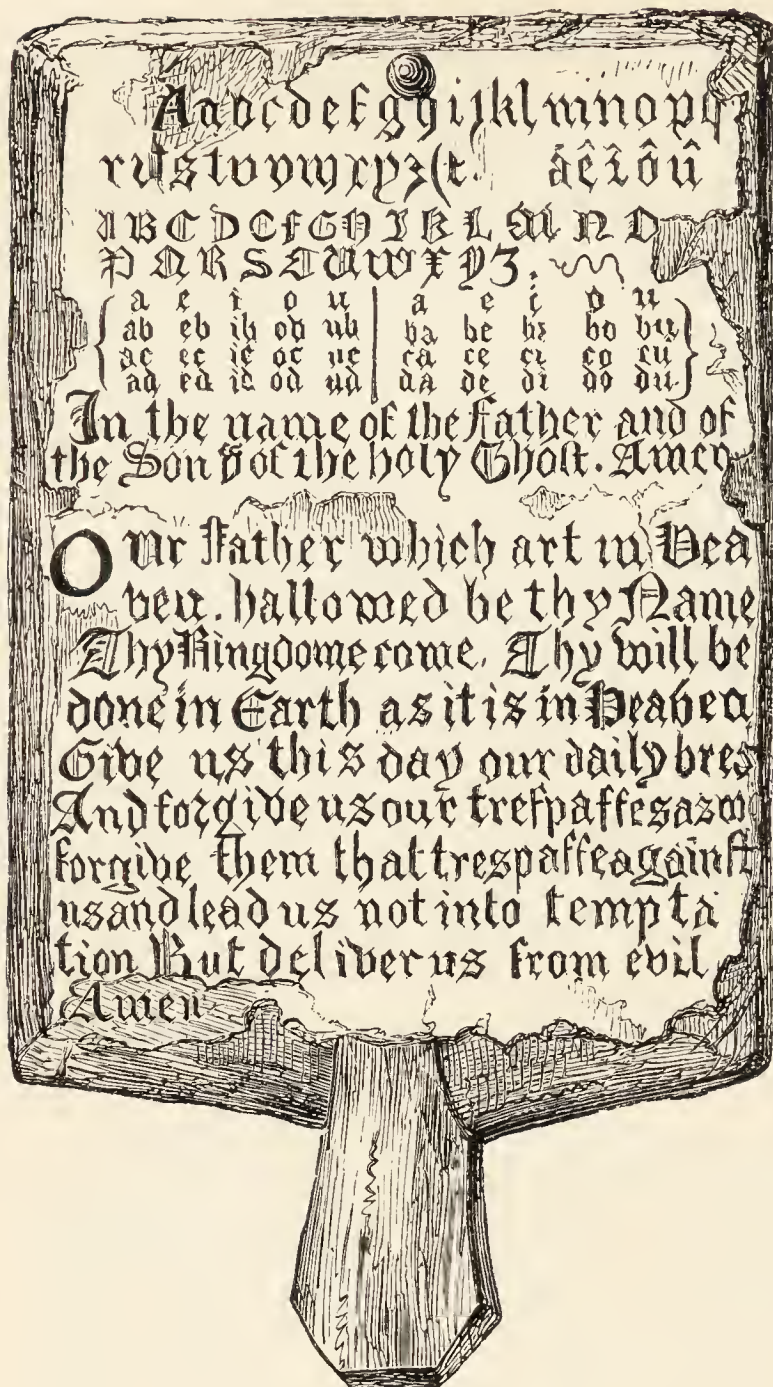 Aabcdefghijklmnopq
rꝛſstuvwxyz&. áêîôû
ABCDEFGHIKLMNO
PQRSTUWXYZ.
a e i o u | a e i o u
ab eb ib ob ub | ba be bi bo bu
ac ec ic oc uc | ca ce ci co cu
ad ed id od ud | da de di do du
In the name of the Father and of
the Son & of the holy Ghost. Amen
OUr Father which art in Hea
ven. hallowed be thy Name
Thy Kingdome come. Thy will be
done in Earth as it is in Heaven
Give us this day our daily bred
And forgive us our treſpaſſes as we
forgive them that trespaſſe againſt
us and lead us not into tempta
tion But deliver us from evil
Amen